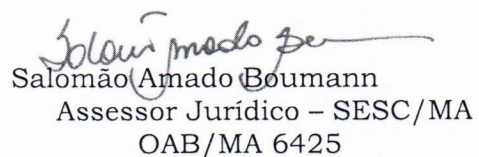 Salomão Amado Boumann
Assessor Jurídico – SESC/MA
OAB/MA 6425